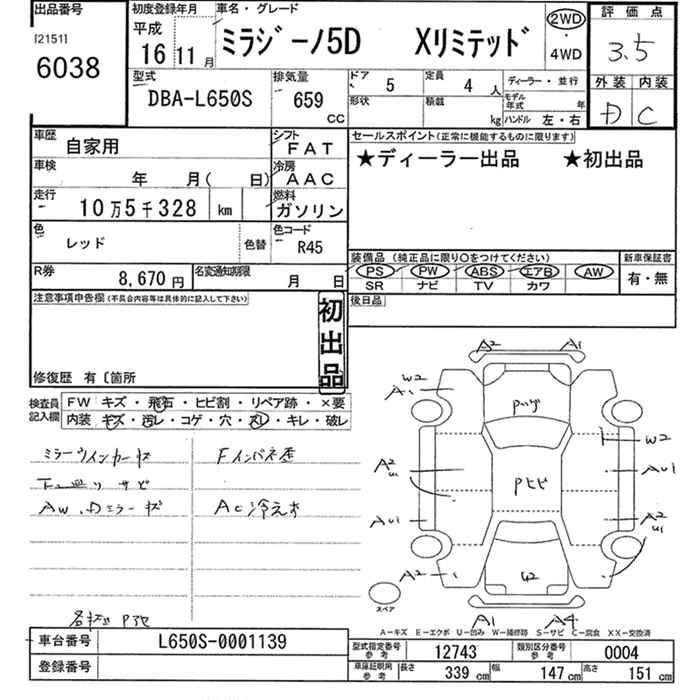 出品番号
[2151]
6038
初度登録年月
平成
16 11月
車名・グレード
ミラジーノ5D Xリミテッド
2WD
・
4WD
評価点
3.5
外装 内装
D C
型式
DBA-L650S
排気量
659
CC
ドア
5
定員
4 人
形状
積載
kg
ディーラー・並行
モデル年式 年
ハンドル 左・右
車歴
自家用
シフト
FAT
車検
年 月( 日)
冷房
AAC
走行
10万5千328 km
燃料
ガソリン
色
レッド
色替
色コード
R45
R券
8,670円
名変通知期限
月 日
セールスポイント(正常に機能するものに限ります)
★ディーラー出品 ★初出品
装備品 (純正品に限り○をつけてください)
PS PW ABS エアB AW
SR ナビ TV カワ
新車保証書
有・無
後日品
注意事項申告欄(不具合内容等は具体的に記入して下さい)
初出品
修復歴 有〔箇所
検査員記入欄
FW キズ・飛石・ヒビ割・リペア跡・×要
内装 キズ・汚レ・コゲ・穴・スレ・キレ・破レ
ミラーウインカーキズ
Fインパネ歪
下廻りサビ
AW、Dミラーキズ
AC冷えず
A2 A1
W2
A1
Pハゲ
W2
A2
U1
Pヒビ
AU1
AU1
A2
U1
A2
W2
スペア
A1 A4
A-キズ E-エクボ U-凹み W-補修跡 S-サビ C-腐食 XX-交換済
車台番号
L650S-0001139
登録番号
型式指定番号
参考
12743
類別区分番号
参考
0004
車庫証明用
参考
長さ 339 cm
幅 147 cm
高さ 151 cm